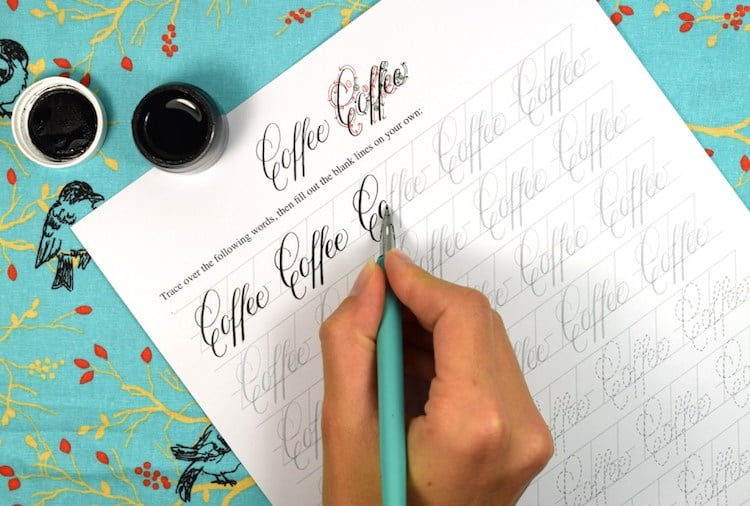 Coffee Coffee
Trace over the following words, then fill out the blank lines on your own:
Coffee Coffee Coffee Coffee Coffee
Coffee Coffee Coffee Coffee
Coffee Coffee Coffee
Coffee Coffee
Coffee Coffee Coffee
Coffee Coffee Coffee
Coffee